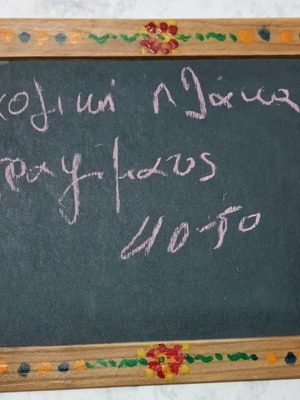 χολική πλάκα
ραγματος
40-50